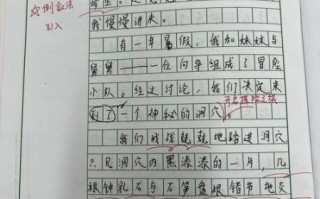 ☆倒叙法
引入
我慢慢讲来。
有一年暑假，我和妹妹与
舅舅——一位向导组成了冒险
小队。经过讨论，我们决定来
到了一个神秘的洞穴。
开启探险之旅
我们战战兢兢地踏进洞穴
只见洞穴内黑漆漆的一片，几
根钟乳石与石笋盘根错节地交